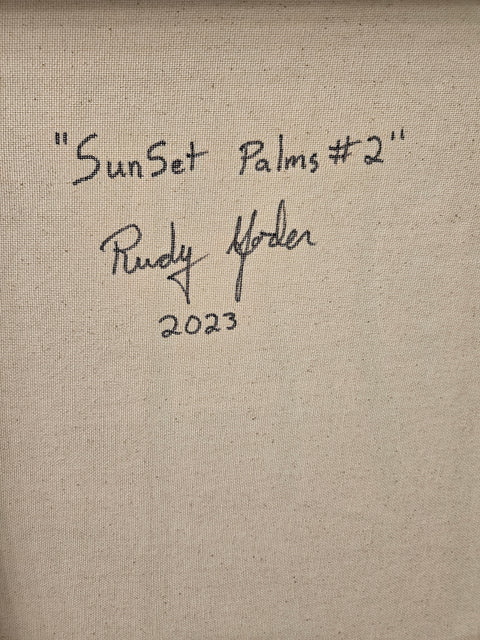 "SunSet Palms #2"
Rudy Yoder
2023